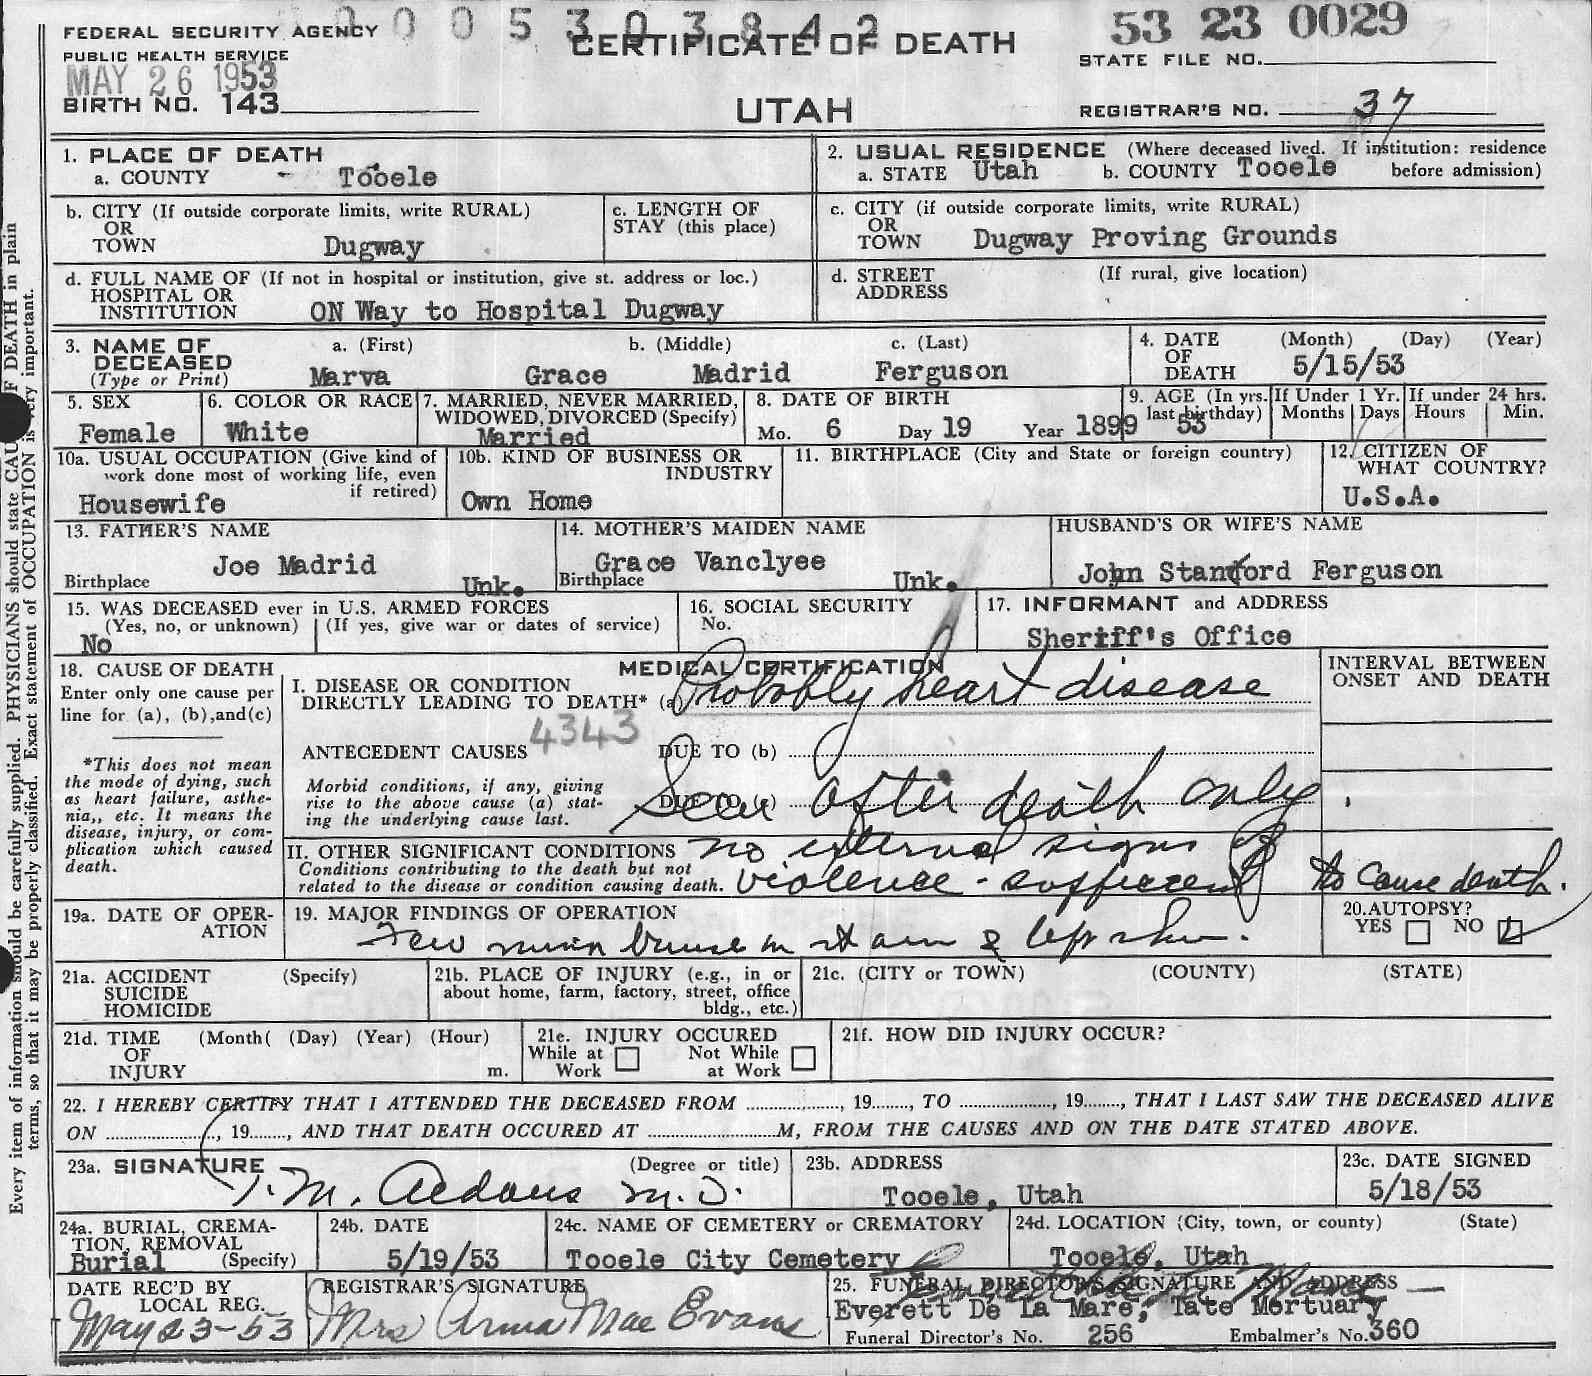 0005303842
FEDERAL SECURITY AGENCY
PUBLIC HEALTH SERVICE
MAY 26 1953
BIRTH NO. 143
CERTIFICATE OF DEATH
UTAH
53 23 0029
STATE FILE NO.
REGISTRAR'S NO. 37
Every item of information should be carefully supplied. PHYSICIANS should state CAU F DEATH in plain
terms, so that it may be properly classified. Exact statement of OCCUPATION is ry important.
1. PLACE OF DEATH
a. COUNTY Tooele
2. USUAL RESIDENCE (Where deceased lived. If institution: residence
a. STATE Utah b. COUNTY Tooele before admission)
b. CITY (If outside corporate limits, write RURAL)
OR
TOWN Dugway
c. LENGTH OF
STAY (this place)
c. CITY (if outside corporate limits, write RURAL)
OR
TOWN Dugway Proving Grounds
d. FULL NAME OF (If not in hospital or institution, give st. address or loc.)
HOSPITAL OR
INSTITUTION ON Way to Hospital Dugway
d. STREET (If rural, give location)
ADDRESS
3. NAME OF a. (First) b. (Middle) c. (Last)
DECEASED
(Type or Print) Marva Grace Madrid Ferguson
4. DATE (Month) (Day) (Year)
OF
DEATH 5/15/53
5. SEX
Female
6. COLOR OR RACE
White
7. MARRIED, NEVER MARRIED,
WIDOWED, DIVORCED (Specify)
Married
8. DATE OF BIRTH
Mo. 6 Day 19 Year 1899
9. AGE (In yrs.
last birthday)
53
If Under 1 Yr.
Months Days
If under 24 hrs.
Hours Min.
10a. USUAL OCCUPATION (Give kind of
work done most of working life, even
if retired)
Housewife
10b. KIND OF BUSINESS OR
INDUSTRY
Own Home
11. BIRTHPLACE (City and State or foreign country)
12. CITIZEN OF
WHAT COUNTRY?
U.S.A.
13. FATHER'S NAME
Joe Madrid
Birthplace Unk.
14. MOTHER'S MAIDEN NAME
Grace Vanclyee
Birthplace Unk.
HUSBAND'S OR WIFE'S NAME
John Stanford Ferguson
15. WAS DECEASED ever in U.S. ARMED FORCES
(Yes, no, or unknown) (If yes, give war or dates of service)
No
16. SOCIAL SECURITY
No.
17. INFORMANT and ADDRESS
Sheriff's Office
18. CAUSE OF DEATH
Enter only one cause per
line for (a), (b),and(c)
*This does not mean
the mode of dying, such
as heart failure, asthe-
nia,, etc. It means the
disease, injury, or com-
plication which caused
death.
MEDICAL CERTIFICATION
I. DISEASE OR CONDITION
DIRECTLY LEADING TO DEATH* (a) Probably heart disease
4343
ANTECEDENT CAUSES DUE TO (b)
Morbid conditions, if any, giving
rise to the above cause (a) stat-
ing the underlying cause last.
DUE TO (c) Seen after death only
INTERVAL BETWEEN
ONSET AND DEATH
II. OTHER SIGNIFICANT CONDITIONS no external signs of
Conditions contributing to the death but not
related to the disease or condition causing death. violence - sufficient to cause death.
19a. DATE OF OPER-
ATION
19. MAJOR FINDINGS OF OPERATION
Few minor bruise on rt arm & left
20.AUTOPSY?
YES NO
21a. ACCIDENT (Specify)
SUICIDE
HOMICIDE
21b. PLACE OF INJURY (e.g., in or
about home, farm, factory, street, office
bldg., etc.)
21c. (CITY or TOWN) (COUNTY) (STATE)
21d. TIME (Month( (Day) (Year) (Hour)
OF
INJURY m.
21e. INJURY OCCURED
While at Not While
Work at Work
21f. HOW DID INJURY OCCUR?
22. I HEREBY CERTIFY THAT I ATTENDED THE DECEASED FROM ................, 19........, TO ................, 19......., THAT I LAST SAW THE DECEASED ALIVE
ON ..................., 19........, AND THAT DEATH OCCURED AT ......................M, FROM THE CAUSES AND ON THE DATE STATED ABOVE.
23a. SIGNATURE (Degree or title)
M. Aldous M.D.
23b. ADDRESS
Tooele, Utah
23c. DATE SIGNED
5/18/53
24a. BURIAL, CREMA-
TION, REMOVAL
Burial (Specify)
24b. DATE
5/19/53
24c. NAME OF CEMETERY or CREMATORY
Tooele City Cemetery
24d. LOCATION (City, town, or county) (State)
Tooele, Utah
DATE REC'D BY
LOCAL REG.
May 23-53
REGISTRAR'S SIGNATURE
Mrs Anna Mae Evans
25. FUNERAL DIRECTOR'S SIGNATURE AND ADDRESS
Everett De La Mare, Tate Mortuary
Funeral Director's No. 256 Embalmer's No. 360